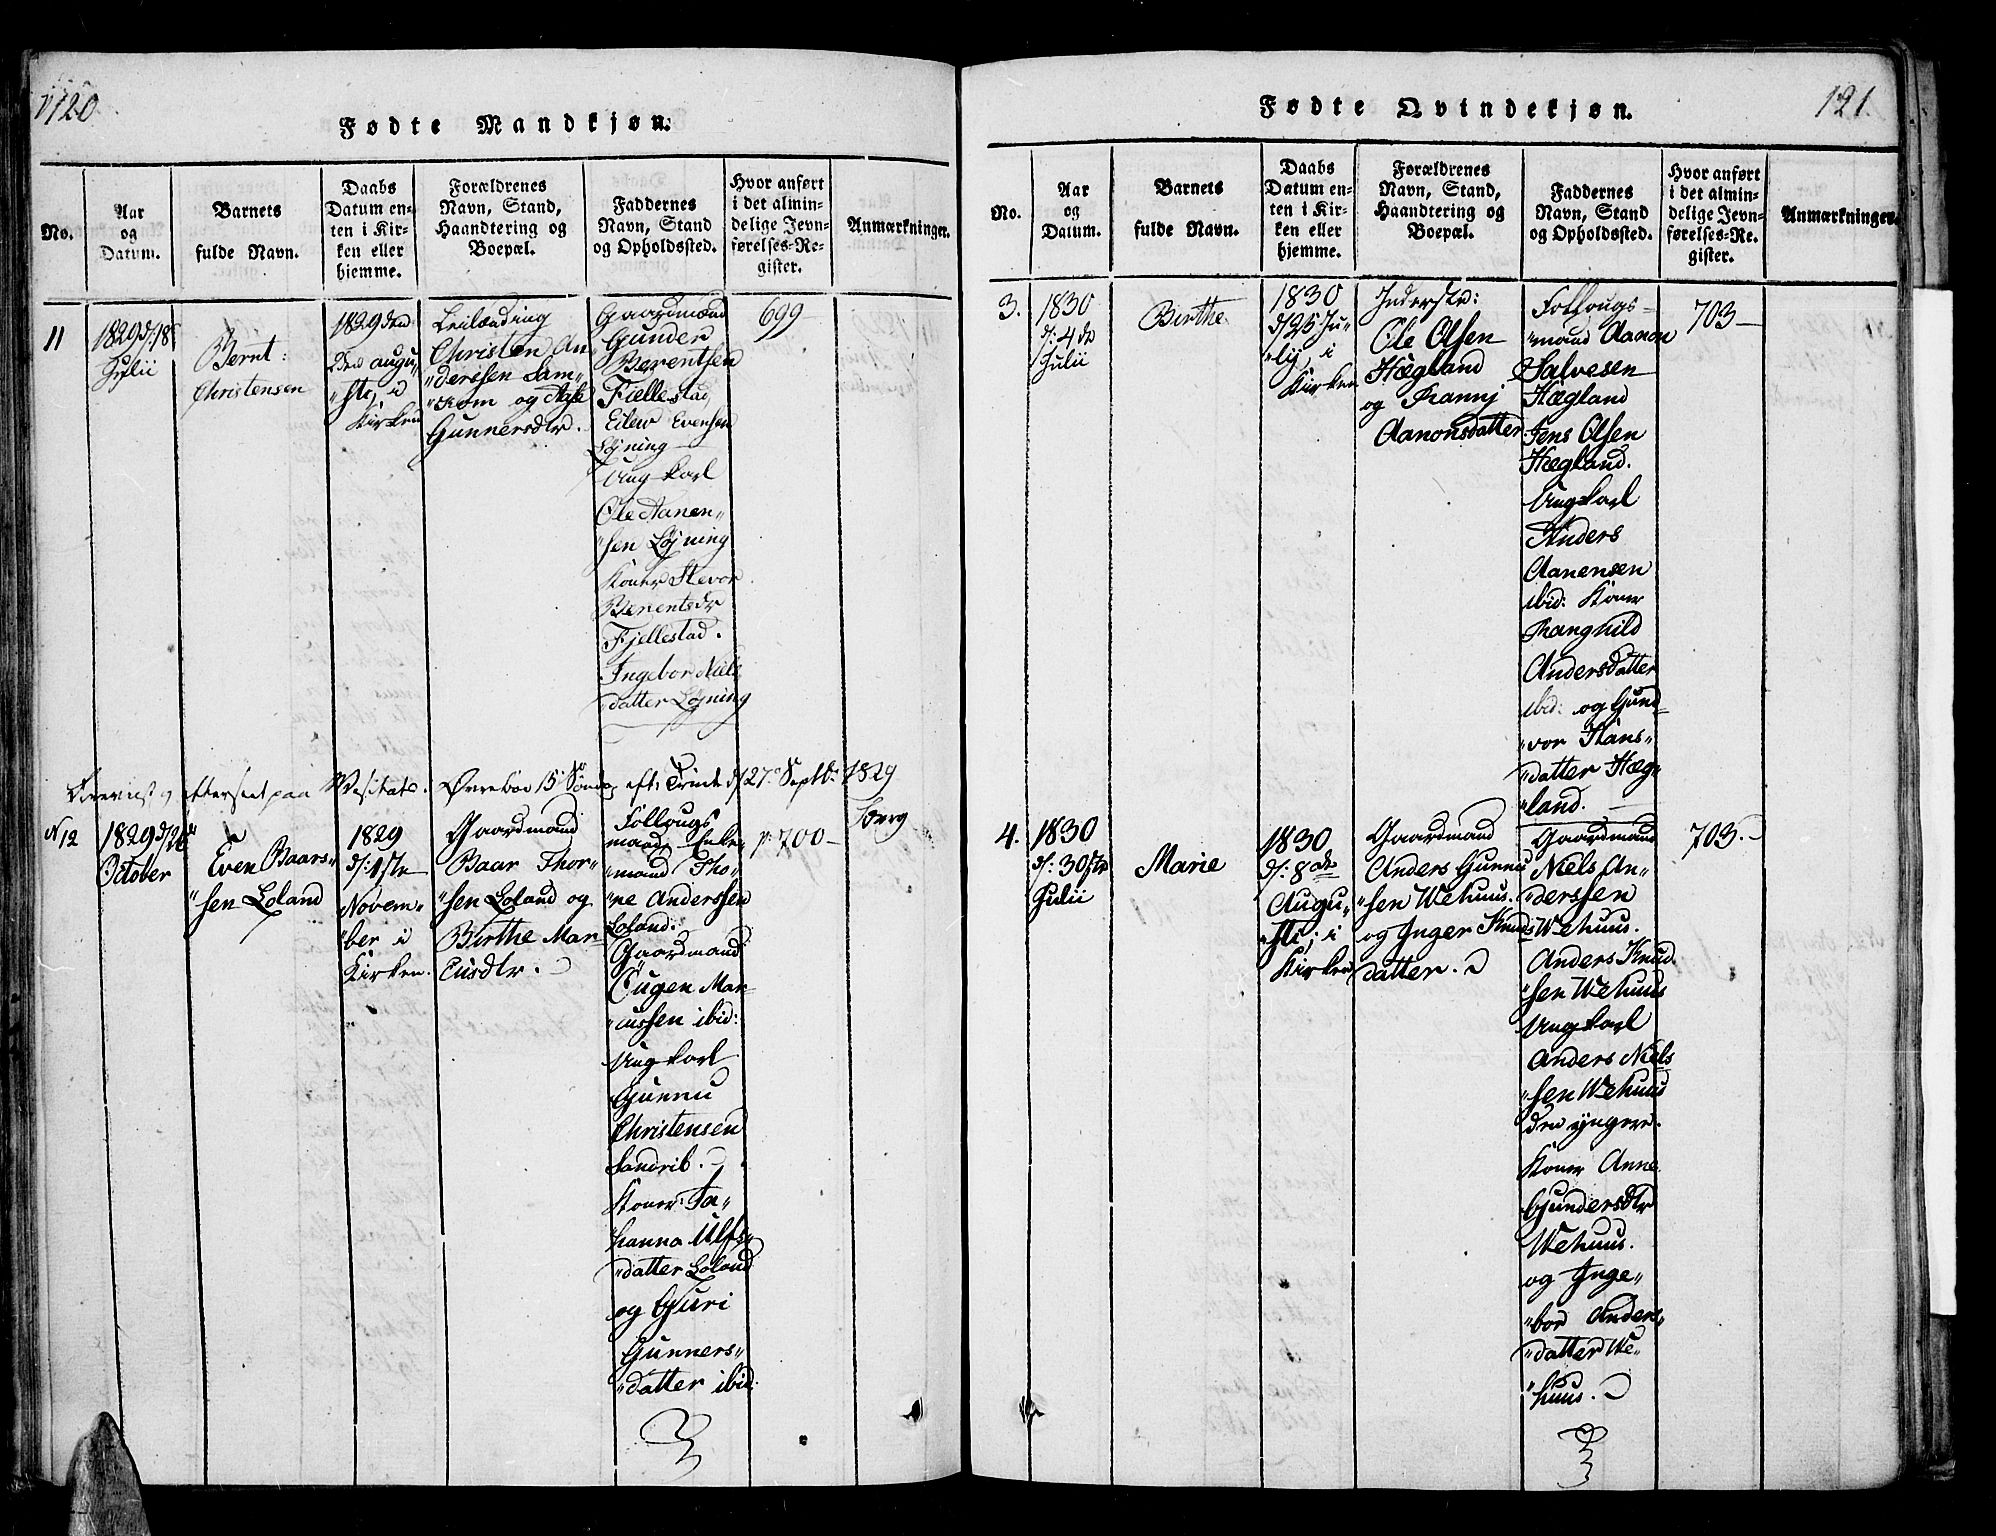 120
Fødte Mandkjøn.
No.
Aar
og
Datum.
Barnets
fulde Navn.
Daabs
Datum en-
ten i Kir-
ken eller
hjemme.
Forældrenes
Navn, Stand,
Haandtering og
Boepæl.
Faddernes
Navn, Stand
og Opholdssted.
Hvor anført
i det almin-
delige Jevn-
førelses-Re-
gister.
Anmærkninger.
11
1829 d/18
Julii
Bernt
Christensen
1829 den
2den augu-
"sti, i
Kirken
Leilænding
Christen An
"dersen Sam"
"kom og Aase
Gunnersdtr.
Gaardmænd
Gunder
Berentsen
Fjellestad,
Eilew Evensen
Løjning
Ungkarl
Ole Aanen"
"sen Løjning
Koner Stevor
Berentsdr
Fjellestad.
Ingebor Niels
datter Løjning
699
eftterseet paa Visitats. Øvrebøe 15 Sønda eft. Trinit. d/27 Septbr 1829
N 12
1829 d/26de
October
Even Baars-
"sen Loland
1829
d: 1ste
Novem"
"ber i
Kirken.
Gaardmand
Baar Thor"
"sen Loland og
Birthe Mar-
cusdtr.
Follougs
mand Enke-
"mand Tho"
"ne Anderssen
Loland.
Gaardmand
Ougen Mar-
"cussen ibid:
Ungkarl
Gunnu
Christensen
Sandrib.
Koner: Jo"
hanna Ulfs"
"datter Loland
og Guri
Gunners"
"datter ibid:
700-
121.
Fødte Qvindekjøn.
No.
Aar
og
Datum.
Barnets
fulde Navn.
Daabs
Datum en-
ten i Kir-
ken eller
hjemme.
Forældrenes
Navn, Stand,
Haandtering og
Boepæl.
Faddernes
Navn, Stand
og Opholdssted.
Hvor anført
i det almin-
delige Jevn-
førelses-Re-
gister.
Anmærkninger.
3.
1830
d: 4de
Julii
Birthe
1830
d/25 Ju"
"lij, i
Kirken
Inderstr:
Ole Olsen
Hægland
og Rannj
Aanonsdatter
Follougs-
"mand Aanon
Salvesen
Hægland
Jens Olsen
Hægland.
Ungkarl
Anders
Aanensen
ibid: Koner
Ranghild
Andersdatter
ibid: og Gund-
"vor Hans"
"datter Hæg"
"land.
703-
4.
1830
d: 30te
Julii
Marie
1830
d: 8de
Augu"
"sti; i
Kirken
Gaardmand
Anders Gunnu
"sen Wehuus.
og Inger Knuds
datter.
Gaardmand
Niels An"
"derssen
Wehuus.
Anders Knud
"sen Wehuus
Ungkarl
Anders Niels
"sen Wehuus
den yngere.
Koner Anne
Gundersdtr
Wehuus.
og Inge"
"bor Anders"
"datter We"
"huus.
703.-